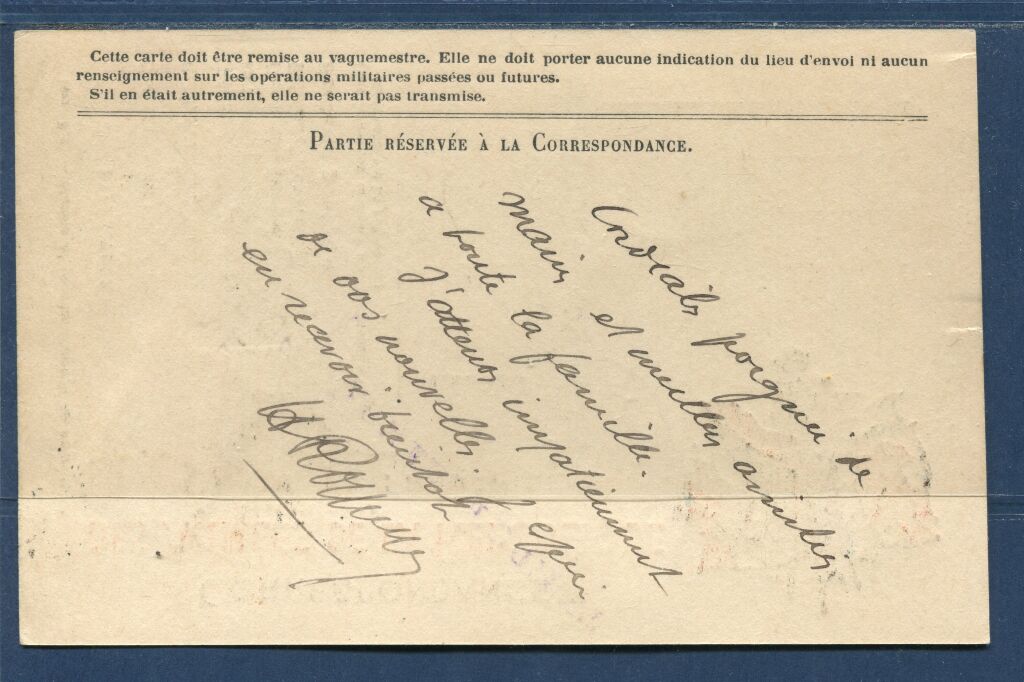 Cette carte doit être remise au vaguemestre. Elle ne doit porter aucune indication du lieu d'envoi ni aucun
renseignement sur les opérations militaires passées ou futures.
S'il en était autrement, elle ne serait pas transmise.
PARTIE RÉSERVÉE À LA CORRESPONDANCE.
Cordiales poignées de
mains et meilleures amitiés
a toute la famille.
J'attends impatiemment
de vos nouvelles. J'espère
en recevoir bientôt